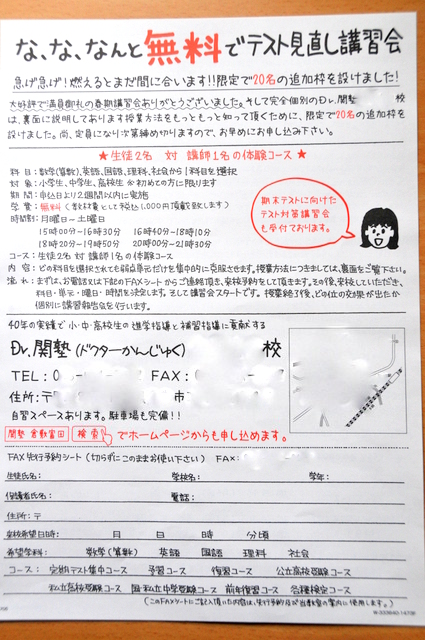 な、な、なんと無料でテスト見直し講習会
急げ急げ!燃えるとまだ間に合います!!限定で20名の追加枠を設けました!
大好評で満員御礼の春期講習会ありがとうございました。そして完全個別のDr.関塾 校
は、裏面に説明しております授業方法をもっともっと知って頂くために、限定で20名の追加枠を
設けました。尚、定員になり次第締め切りますので、お早めにお申し込み下さい。
★生徒2名 対 講師1名の体験コース★
科目:数学(算数)、英語、国語、理科、社会から1科目を選択
対象:小学生、中学生、高校生 ※初めての方に限ります
期間:申込日より2週間以内に実施
学費:無料(教材費として税込1,000円頂戴致します)
時間割:月曜日~土曜日
15時00分~16時30分 16時40分~18時10分
18時20分~19時50分 20時00分~21時30分
コース:生徒2名 対 講師1名の体験コース
内容:どの科目を選択されても弱点単元だけを集中的に克服させます。授業方法につきましては、裏面をご覧下さい。
流れ:まずは、お電話又は下記のFAXシートからご連絡頂き、来校予約をして頂きます。その後、来校していただき、
科目・単元・曜日・時間を決定します。そして講習会スタートです。授業終了後、どの位の効果が出たか
個別に講習報告会を行います。
期末テストに向けた
テスト対策講習会
も受付ております。
40年の実績で小・中・高校生の進学指導と補習指導に貢献する
Dr.関塾(ドクターかんじゅく) 校
TEL:0 FAX:0
住所:〒 市
自習スペースあります。駐車場も完備!!
関塾 倉敷富田 検索 でホームページからも申し込めます。
FAX先行予約シート(切らずにこのままお使い下さい) FAX:
生徒氏名: 学校名: 学年:
保護者氏名: 電話:
住所:〒
来校希望日時: 月 日 時 分頃
希望学科: 数学(算数) 英語 国語 理科 社会
コース: 定期テスト集中コース 予習コース 復習コース 公立高校受験コース
私立高校受験コース 国・私立中学受験コース 前年復習コース 各種検定コース
(このFAXシートにご記入頂いた内容は、先行予約及び当教室の案内に使用します。)